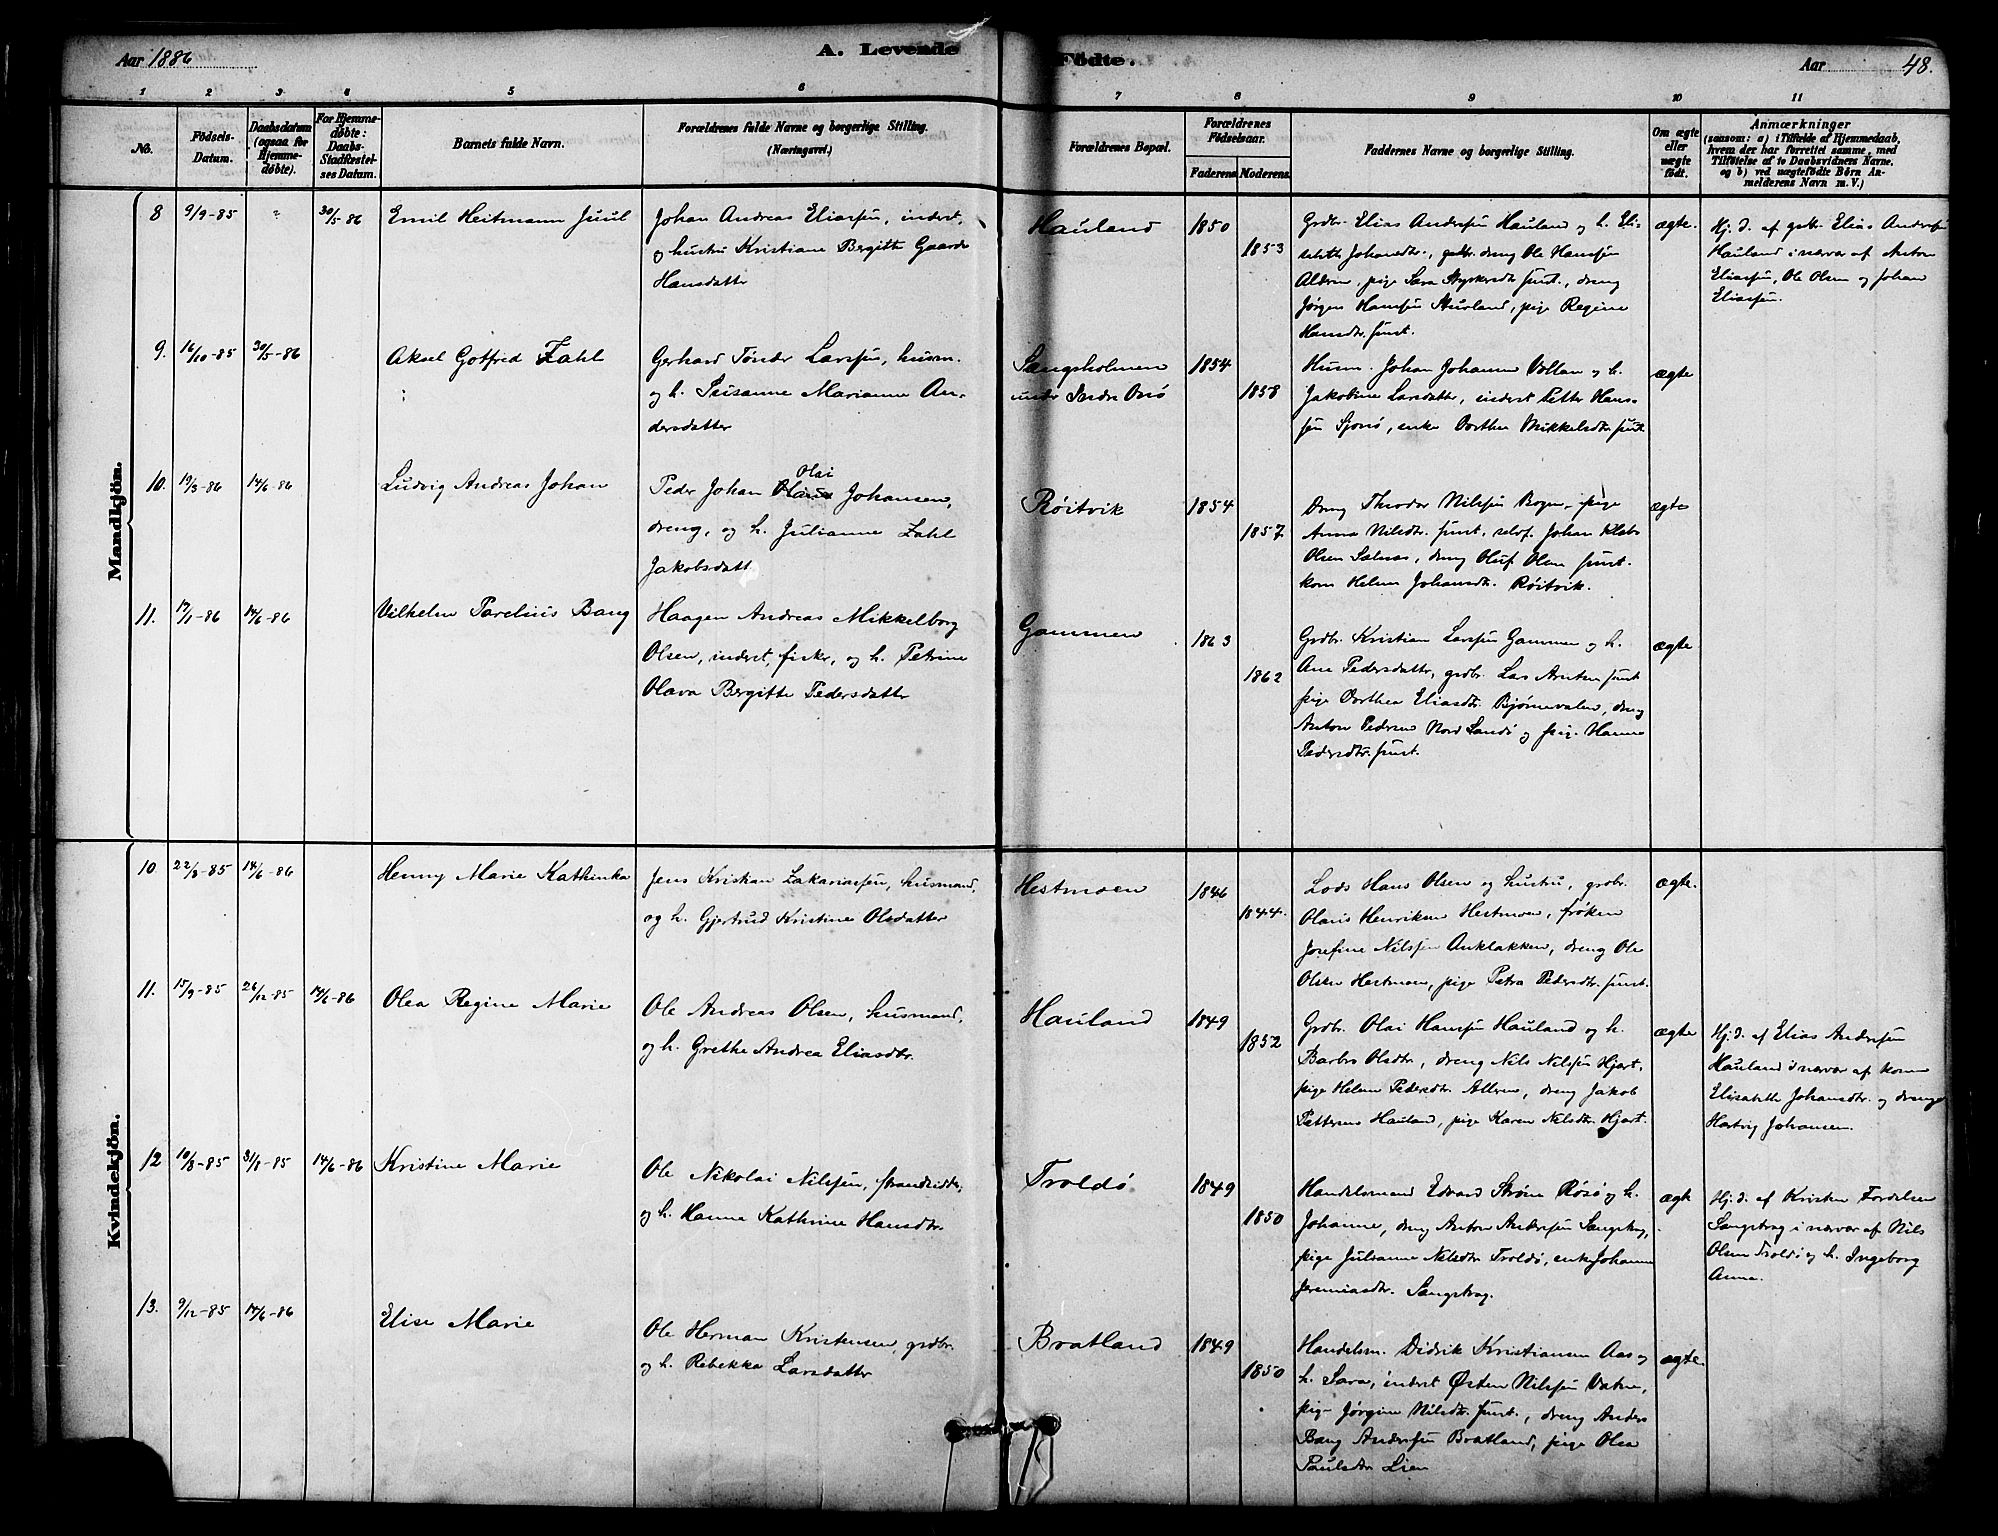 Aar 1886
A. Levende
Födte.
Aar
48.
1 2 3 4 5 6 7 8 9 10 11
No.
Födsels-
Datum.
Daabsdatum
(ogsaa for
Hjemme-
döbte).
For Hjemme-
döbte:
Daabs-
Stadfæstel-
ses Datum.
Barnets fulde Navn.
Forældrenes fulde Navne og borgerlige Stilling.
(Næringsvei.)
Forældrenes Bopæl.
Forældrenes
Födselsaar.
Faderens Moderens
Faddernes Navne og borgerlige Stilling.
Om ægte
eller
uægte
født.
Anmærkninger
(saasom: a) i Tilfælde af Hjemmedaab,
hvem der har forrettet samme, med
Tilføielse af to Daabsvidners Navne,
og b) ved uægtefødte Börn An-
melderens Navn m. V.)
Mandkjön.
8 9/9-85 30/5-86
Emil Heitmann Juul
Johan Andreas Eliassen, inderst,
og hustru Kristiane Bergitte Gaarde
Hansdatter
Hauland
1850
1853
Grdbr. Elias Andersen Hauland og h. Eli-
sabeth Johansdtr., gdbr. dreng Ole Hanssen
Aldren, pige Sara smst., dreng
Jørgen Hanssen Hauland, pige Regine
Hansdtr. smst.
ægte.
Hj. d. af gbr. Elias Andersen
Hauland i nærvær af Anton
Eliassen, Ole Olsen og Johan
Eliassen.
9. 16/10-85 30/5-86
Aksel Gotfred Zahl
Gerhard Tønder Larssen, husm.
og h. Susanne Marianne An-
dersdatter
Sængsholmen
under Indre Onø
1854
1858
Husm. Johan Johannes Vollan og h.
Jakobine Larsdatter, inderst Petter Hans-
sen Sjonø, enke Dorthea Mikkelsdtr smst
ægte
10. 19/3-86 14/6-86
Ludvig Andreas Johan
Olai
Peder Johan Johansen,
dreng, og h. Julianne Zahl
Jakobsdatt
Røitvik
1854
1857
Dreng Theodor Nilssen Bogen, pige
Anna Nilsdtr. smst., selvf. Johan Klabo
Olsen Selnes, dreng Oluf Olsen smst.
kone Helene Johansdtr. Røitvik.
ægte
11. 17/1-86 14/6-86
Vilhelm Parelius Bang
Haagen Andreas Mikkelborg
Olsen, inderst, fisker, og h. Petrine
Olava Bergitte Pedersdatter
Gammen
1863
1862
Grdbr. Kristian Larssen Gammen og h.
Ane Pedersdatter, grdbr. Lars Arntsen smst
pige Dorthea Eliasdtr. Bjørnevalen, dreng
Anton Pedersen Nord Sandø og pige Hanna
Pedersdtr. smst.
ægte
Kvindekjön.
10 22/8-85 14/6-86
Henny Marie Kathinka
Jens Kristian Zakariassen, husmand,
og h. Gjertrud Kristine Olsdatter
Hestmoen
1846
1844.
Lods Hans Olsen og hustru, grdbr.
Olaus Henriksen Hestmoen, frøken
Josefine Nilssen Anklakken, dreng Ole
Olsen Hestmoen, pige Petra Pedersdtr. smst.
ægte.
11. 15/9-85 26/12-85 14/6-86
Olea Regine Marie
Ole Andreas Olsen, husmand,
og h. Grethe Andrea Eliasdtr.
Hauland
1849
1852
Grdbr. Olai Hanssen Hauland og h.
Barbro Olsdtr., dreng Nils Nilssen Hjart,
pige Helene Pedersdtr. Alderen, dreng Jakob
Pettersen Hauland, pige Karen Nilsdtr. Hjart.
ægte
Hj. d. af Elias Andersen
Hauland i nærvær af kone
Elisabeth Johansdtr. og dreng
Hartvig Johansen.
12 10/8-85 31/8-85 14/6-86
Kristine Marie
Ole Nikolai Nilssen, strandsidder,
og h. Hanna Kathrine Hansdtr.
Troldø
1849
1850
Handelsmand Edvard Strøm Røsø og h.
Johanne, dreng Anton Anderssen Sangstrag,
pige Julianne Nilsdtr Troldø, enke Johanne
Jeremiasdtr. Sangstrag.
ægte
Hj. d. af Kristen Fordelsen
Sangstrag i nærvær af Nils
Olsen Troldø og h. Ingeborg
Anna.
13. 9/12-85 14/6-86
Elise Marie
Ole Herman Kristensen, grdbr.
og h. Rebekka Larsdatter
Bratland
1849
1850
Handelsm. Didrik Kristiansen Aas og
h. Sara, inderst Østen Nilssen Vatne,
pige Jørgine Nilsdtr. smst., dreng Anders
Bang Anderssen Bratland, pige Olea
Paulsdtr Lien
ægte.